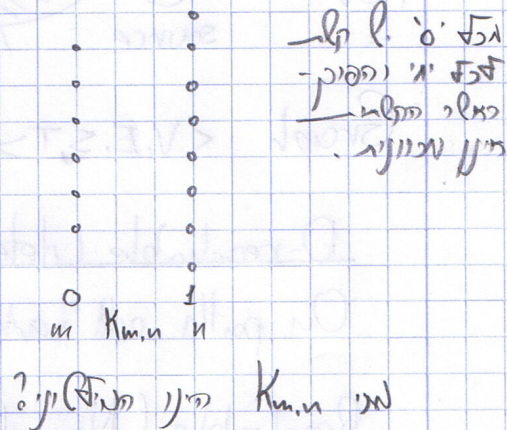 מכל 'ס' יש קשת
לכל 'וי' והפוך -
כאשר הקשת
אינן מכוונית.
0 1
m Km,n n
מתי Km,n הינו המילטוני?